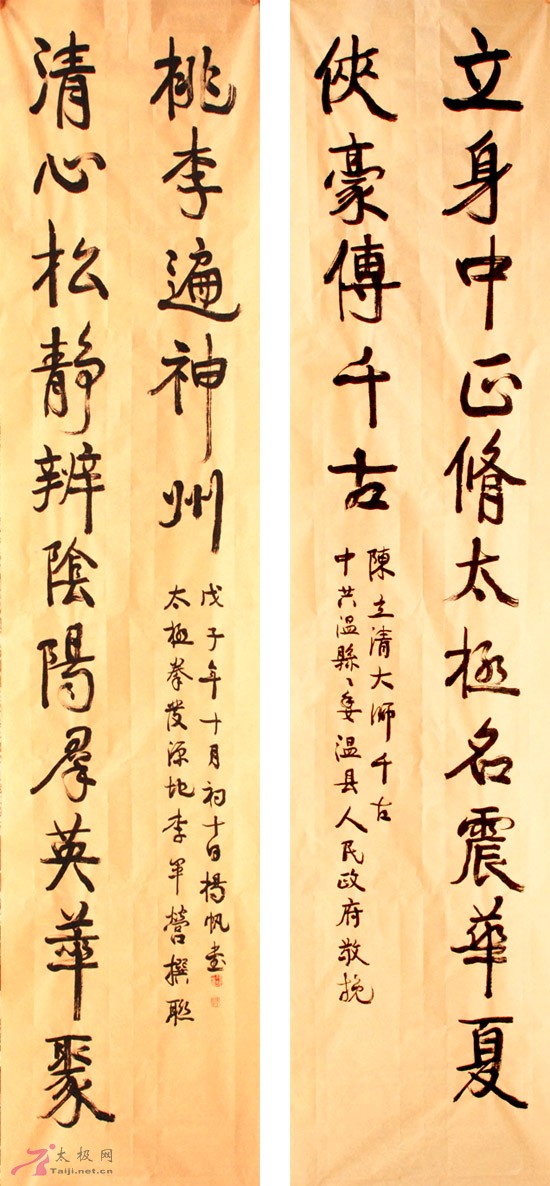 立身中正脩太極名震華夏
俠豪傳千古
陳立清大師千古
中共温縣〻委温县人民政府敬挽
清心松靜辨陰陽羣英華聚
桃李遍神州
太極拳發源地李军營撰聯
戊子年十月初十日楊帆書
太极网
Taiji.net.cn